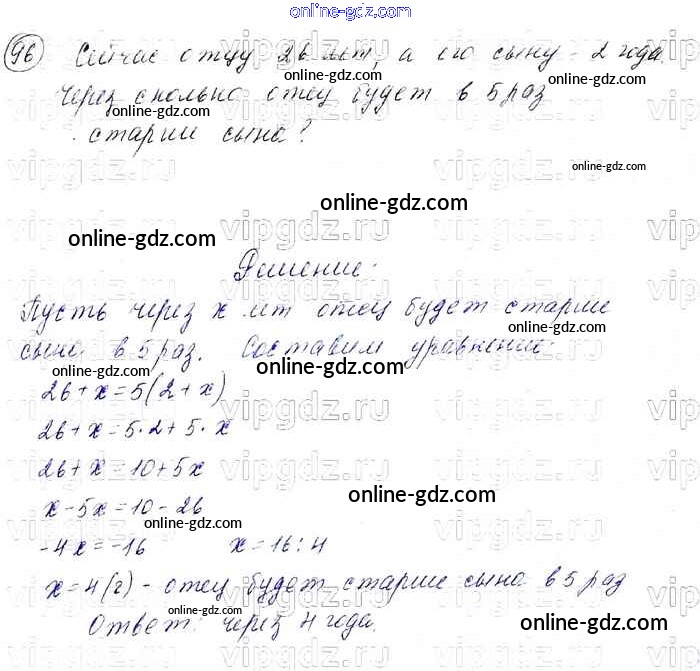 online-gdz.com
96 Сейчас отцу 26 лет, а его сыну - 2 года.
online-gdz.com
Через сколько отец будет в 5 раз
online-gdz.com
старше сына?
online-gdz.com
vipgdz.ru vipgdz.ru vipgdz.ru
online-gdz.com
online-gdz.com
Решение:
Пусть через x лет отец будет старше
online-gdz.com
сына в 5 раз. Составим уравнение:
26+x=5(2+x)
online-gdz.com
26+x=5·2+5·x
26+x=10+5x
x-5x=10-26
online-gdz.com
online-gdz.com
-4x=-16 x=16:4
x=4(г) - отец будет старше сына в 5 раз
online-gdz.com
online-gdz.com
Ответ: через 4 года.